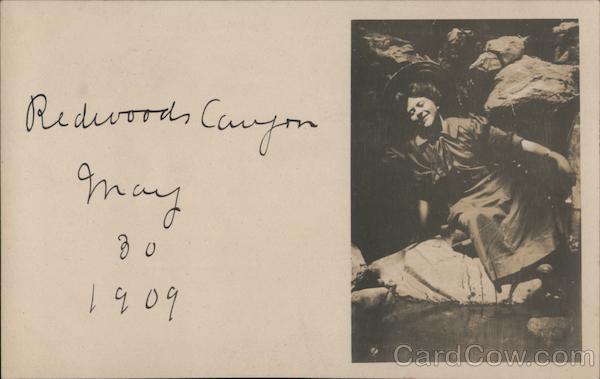 Redwoods Canyon
May
30
1909
CardCow.com